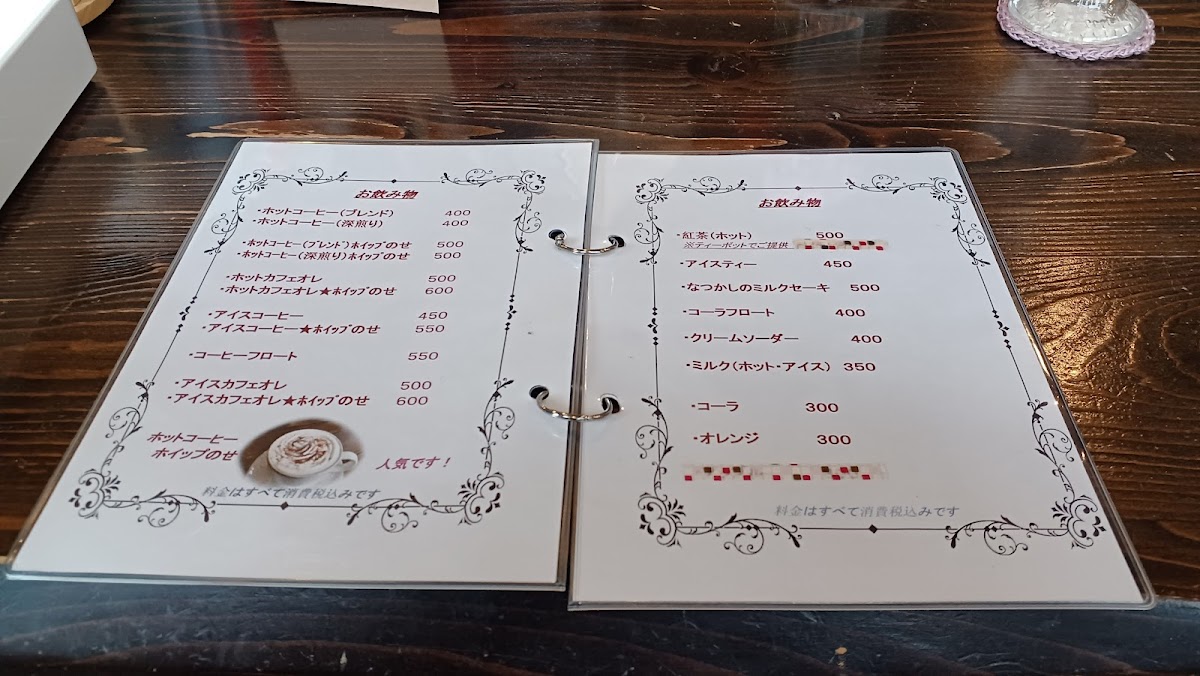 お飲み物
・ホットコーヒー(ブレンド) 400
・ホットコーヒー(深煎り) 400
・ホットコーヒー(ブレンド)ホイップのせ 500
・ホットコーヒー(深煎り)ホイップのせ 500
・ホットカフェオレ 500
・ホットカフェオレ★ホイップのせ 600
・アイスコーヒー 450
・アイスコーヒー★ホイップのせ 550
・コーヒーフロート 550
・アイスカフェオレ 500
・アイスカフェオレ★ホイップのせ 600
ホットコーヒー
ホイップのせ 人気です！
料金はすべて消費税込みです
お飲み物
・紅茶(ホット) 500
※ティーポットでご提供
・アイスティー 450
・なつかしのミルクセーキ 500
・コーラフロート 400
・クリームソーダー 400
・ミルク(ホット・アイス) 350
・コーラ 300
・オレンジ 300
料金はすべて消費税込みです